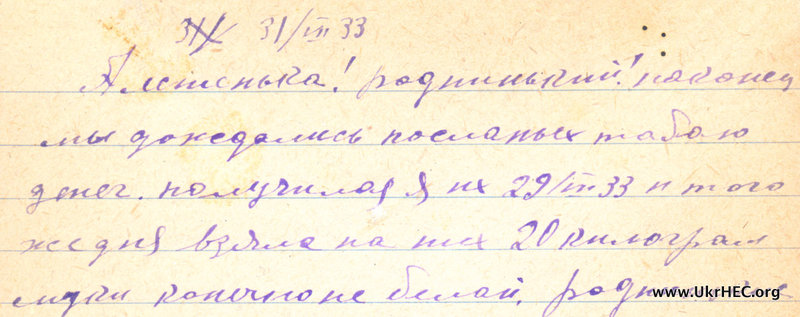 31/X 31/III 33
Алешенька! роднинький! наконец
мы дождались посланых табаю
денег. получилая я их 29/III 33 и того
же дня взяла на них 20 килограм
муки конечно не белай,
www.UkrHEC.org